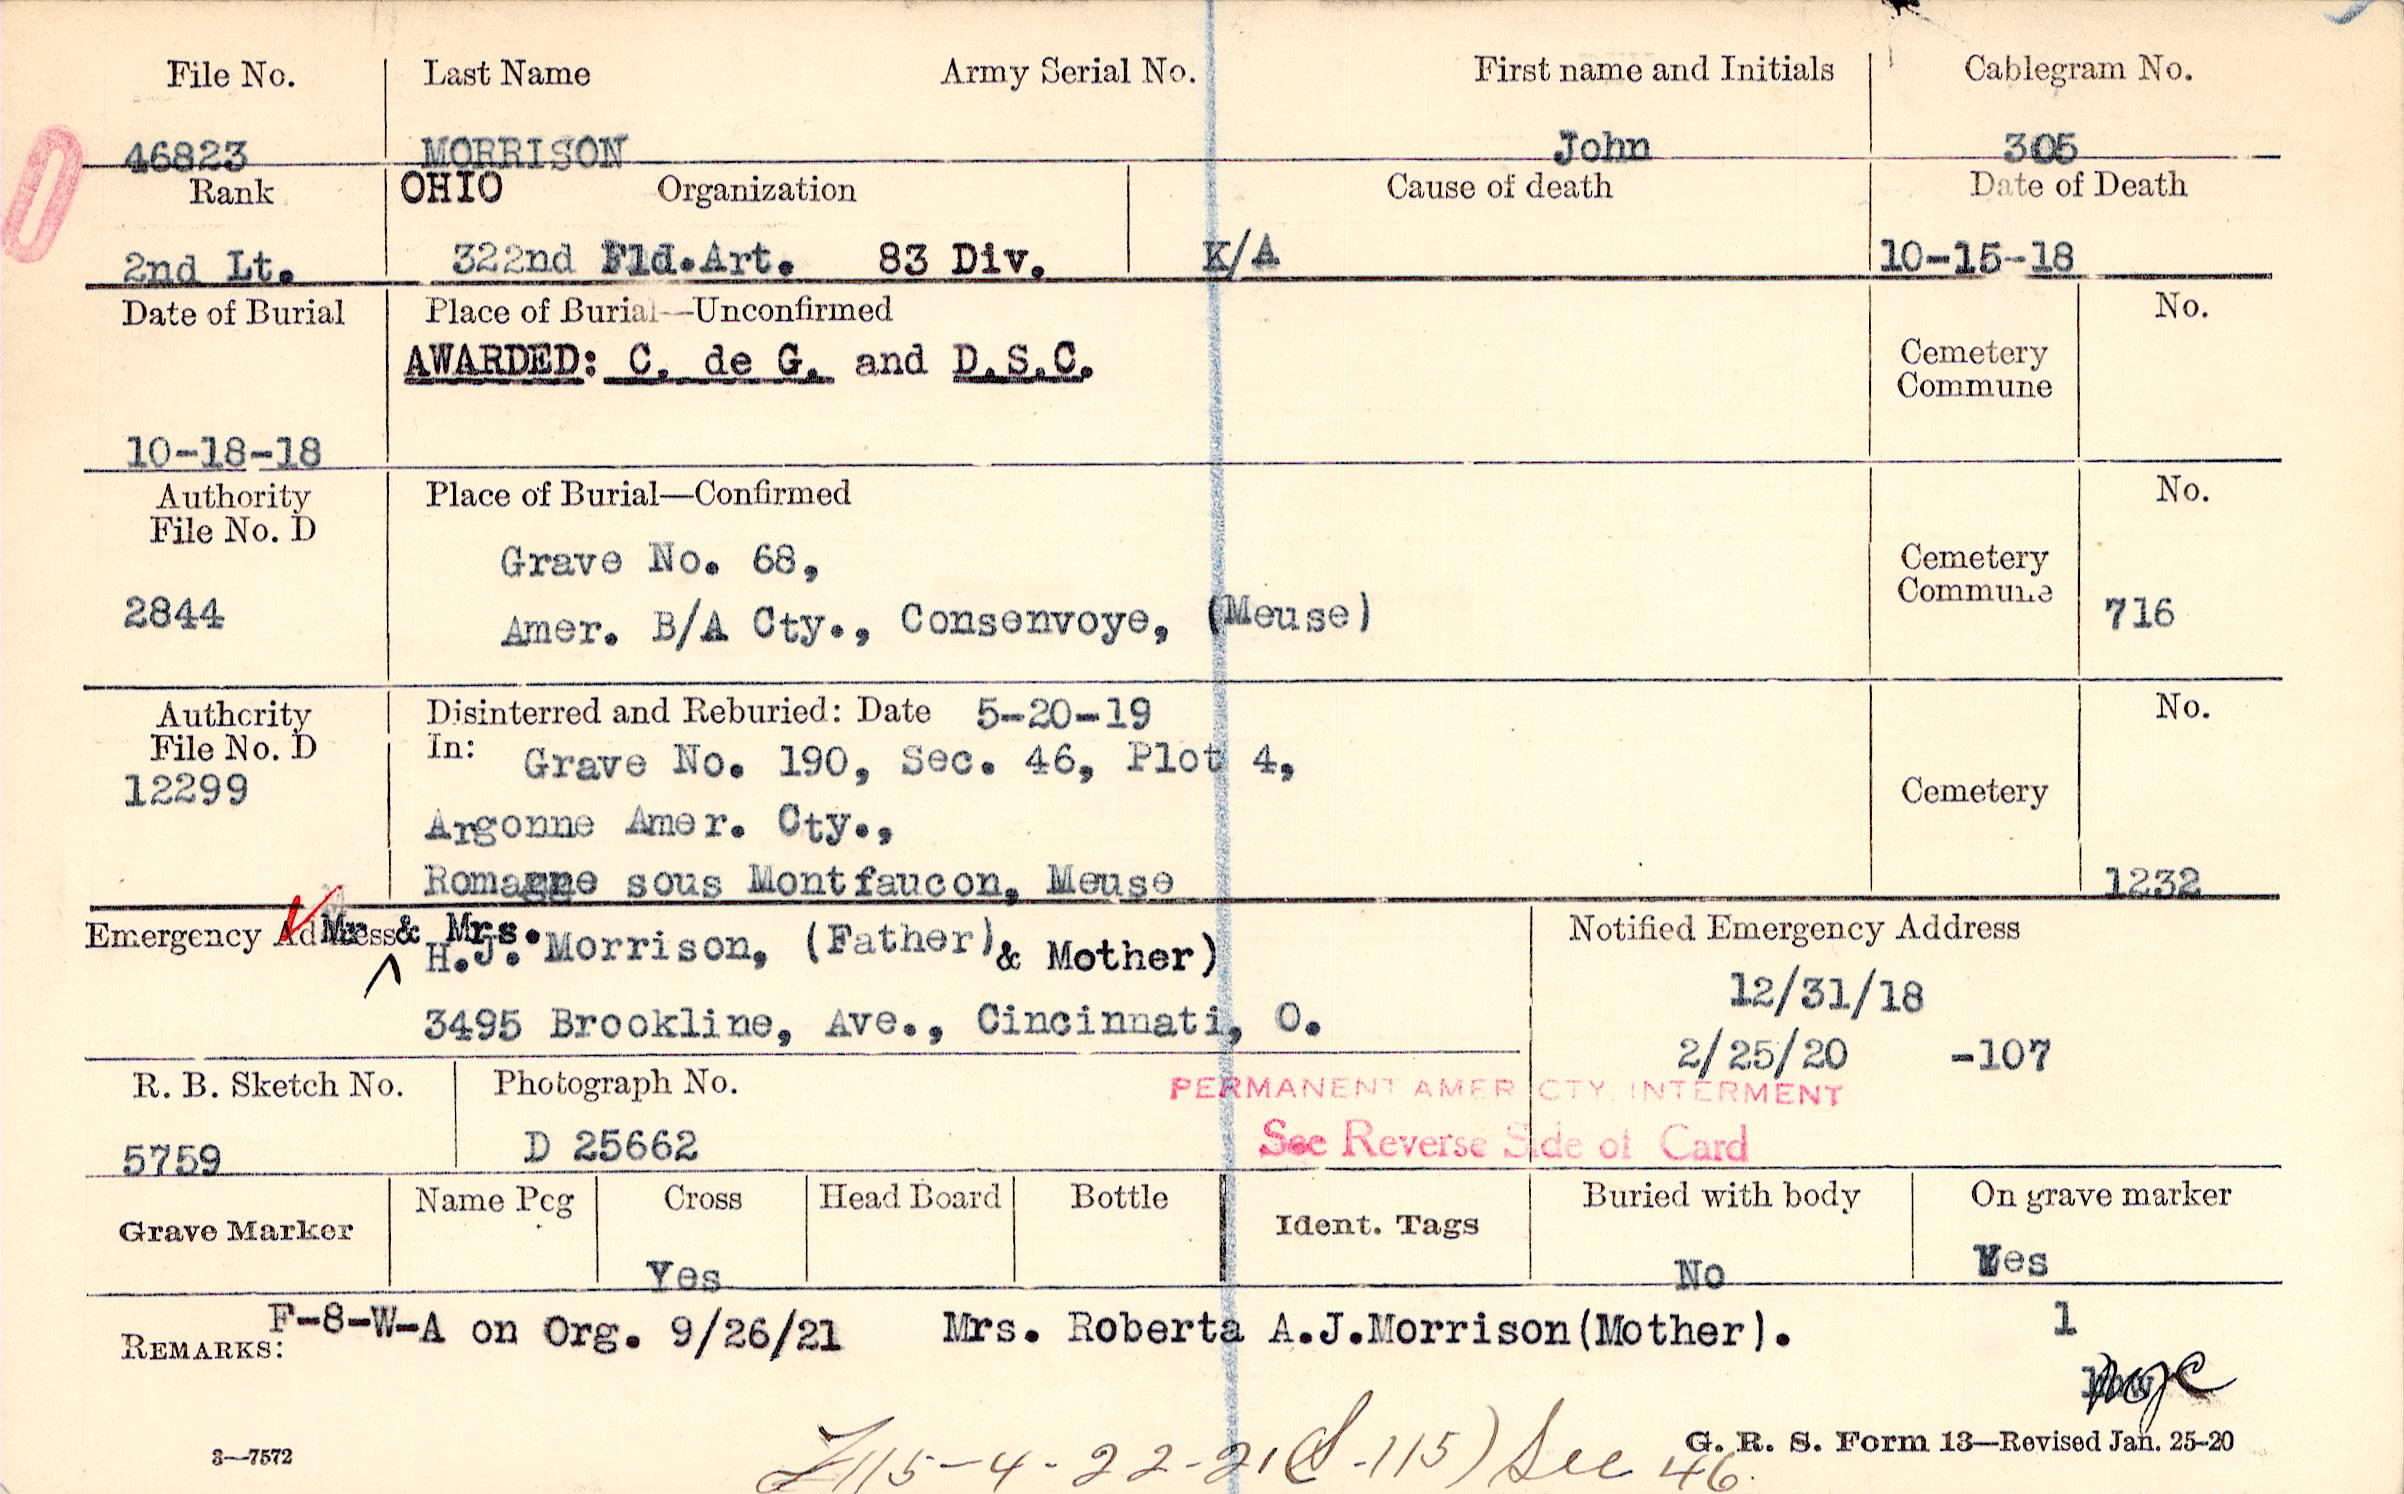 File No. Last Name Army Serial No. First name and Initials Cablegram No.
46823 MORRISON John 305
Rank OHIO Organization Cause of death Date of Death
2nd Lt. 322nd Fld.Art. 83 Div. K/A 10-15-18
Date of Burial Place of Burial—Unconfirmed No.
AWARDED: C. de G. and D.S.C. Cemetery
Commune
10-18-18
Authority Place of Burial—Confirmed No.
File No. D
Grave No. 68, Cemetery
Commune
2844 Amer. B/A Cty., Consenvoye, (Meuse) 716
Authority Disinterred and Reburied: Date 5-20-19 No.
File No. D In: Grave No. 190, Sec. 46, Plot 4,
12299 Cemetery
Argonne Amer. Cty.,
Romagne sous Montfaucon, Meuse 1232
Emergency Address Mr. & Mrs. Notified Emergency Address
H.J. Morrison, (Father) & Mother)
12/31/18
3495 Brookline, Ave., Cincinnati, O.
2/25/20 -107
R. B. Sketch No. Photograph No. PERMANENT AMER CTY. INTERMENT
5759 D 25662 See Reverse Side of Card
Grave Marker Name Peg Cross Head Board Bottle Ident. Tags Buried with body On grave marker
Yes No Yes
REMARKS: F-8-W-A on Org. 9/26/21 Mrs. Roberta A.J.Morrison(Mother). 1
G. R. S. Form 13—Revised Jan. 25-20
3—7572 115-4-22-21 (S-115) See 46.